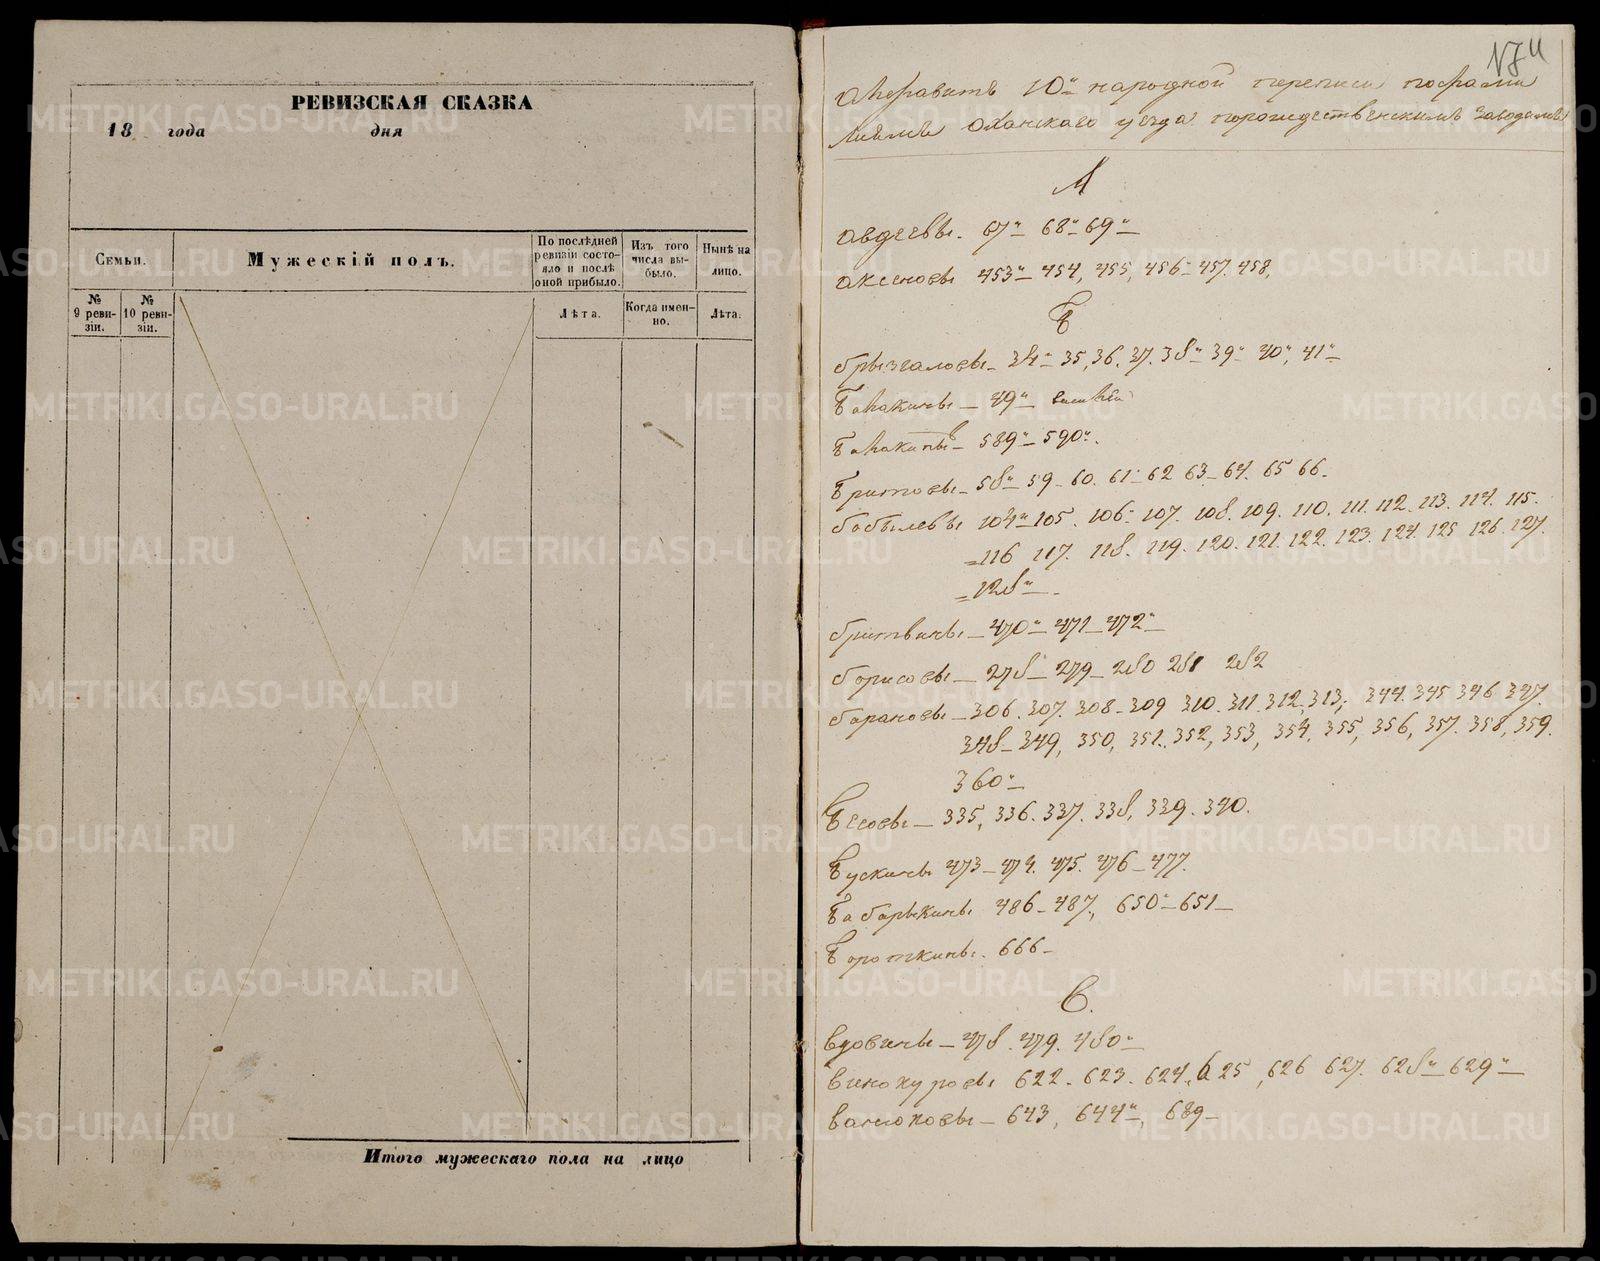 РЕВИЗСКАЯ СКАЗКА
18 года дня
Семьи.
Мужескій полъ.
По послѣдней ревизіи состояло и послѣ оной прибыло.
Изъ того числа выбыло.
Нынѣ на лицо.
№ 9 ревизіи.
№ 10 ревизіи.
Лѣта.
Когда именно.
Лѣта.
Итого мужескаго пола на лицо
Алфавитъ 10й народной переписи по фами
лиямъ Оханскаго уезда порождественскимъ заводамъ
А
авдеевы. 67й 68й 69й
аксеновы 453й 454, 455, 456 457. 458,
Б
брызгаловы 34й 35, 36. 37. 38й 39й 40й, 41й
49й
589й 590й.
58й 59 60. 61 62 63 64. 65 66
бобылевы 104й 105. 106 107. 108. 109. 110. 111. 112. 113. 114. 115.
=116 117. 118. 119. 120. 121. 122. 123. 124. 125 126. 127.
=128й
бритвины 470й 471 472й
борисовы 278й 279 280 281 282
барановы 306. 307. 308 309 310. 311. 312. 313; 344. 345 346 347.
348 349, 350, 351. 352, 353, 354. 355, 356, 357. 358, 359.
360й
335, 336. 337. 338, 339. 340.
Бускины 473 474. 475. 476 477.
Бабарыкины 486 487, 650й 651
Бороткины. 666
В.
вдовины 478. 479. 480й
винокуровы 622. 623. 624, 625, 626 627. 628й 629й
ванюковы 643, 644й, 689
METRIKI.GASO-URAL.RU